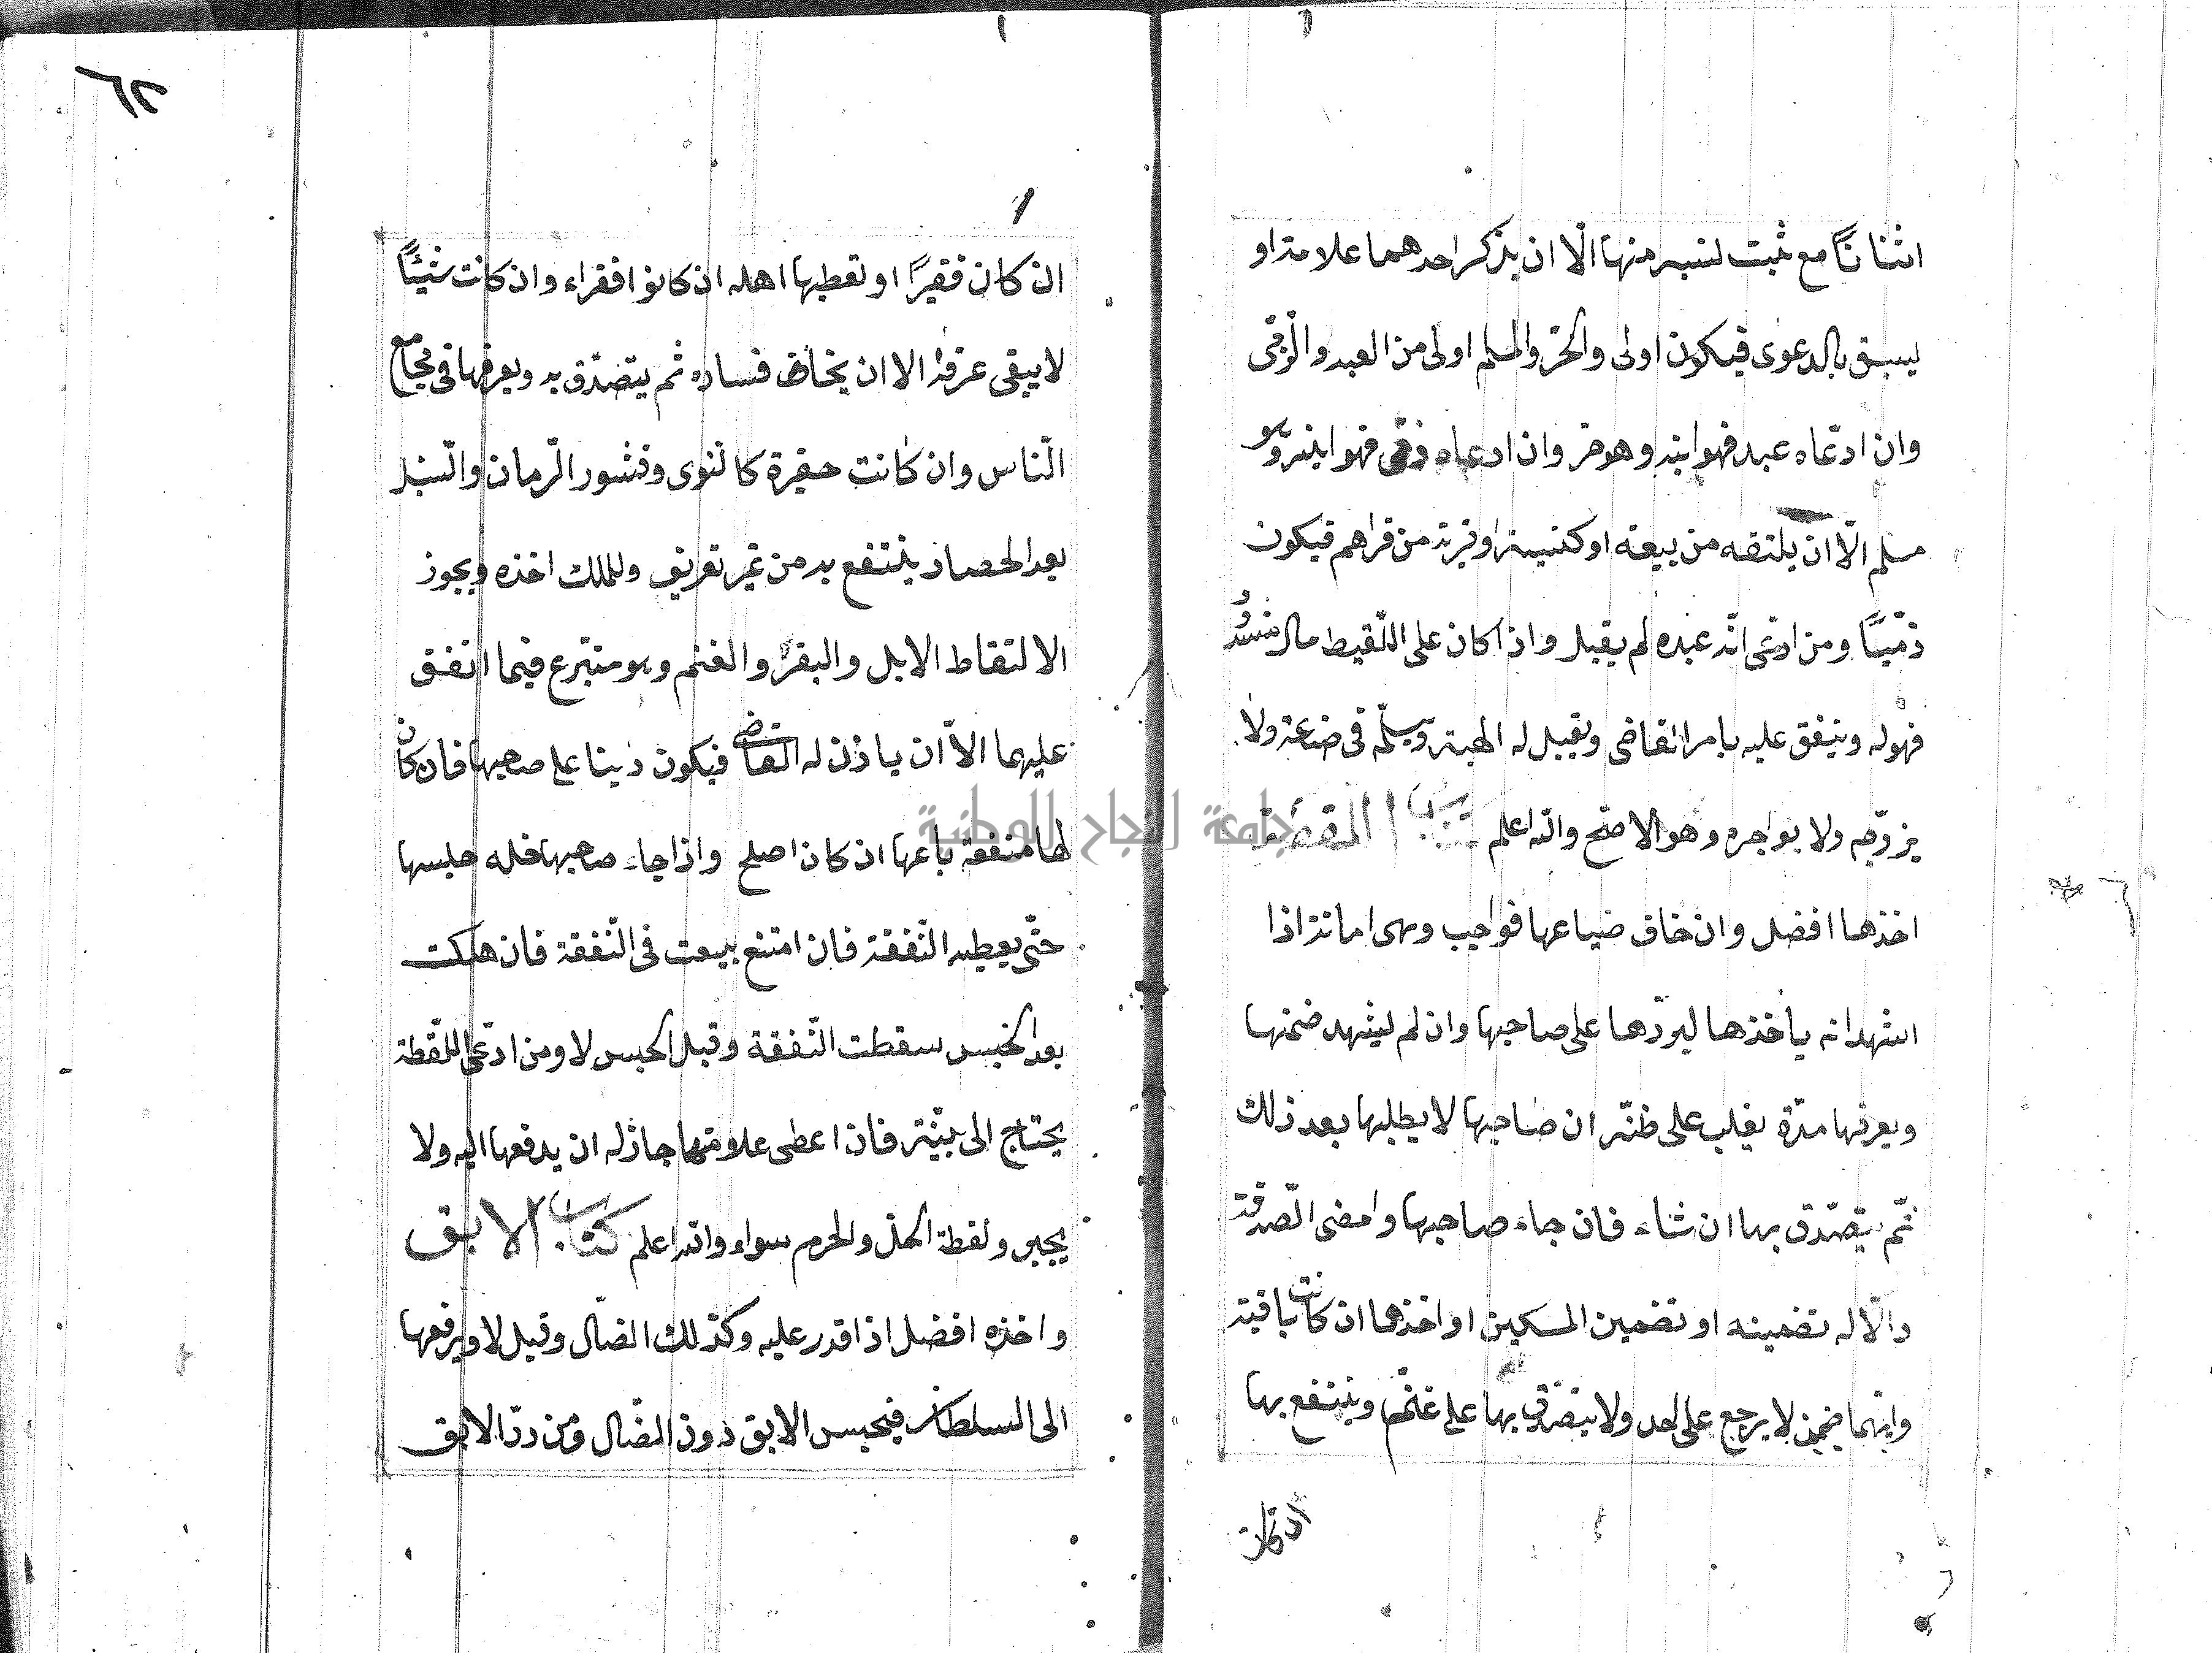 اثنانا مع ثبت نسبه منهما الّا ان يذكر احدهما علامة او
يسبق بالدعوى فيكون اولى والحرّ والمسلم اولى من العبد والذّمّى
وان ادّعاه عبد فهو ابنه وهو حر وان ادعاه ذمّى فهو ابنه وهو
مسلم الّا ان يلتقطه من بيعة او كنيسة او قرية من قراهم فيكون
ذمّيّا ومن ادّعى انّه عبده لم يقبل واذا كان على اللّقيط مال مشدود
فهو له وينفق عليه بامر القاضى ويقبل له الهبة ويسلّمه فى صناعة ولا
يزوّجه ولا يواجره وهو الاصحّ والله اعلم كتاب اللقطة
اخذها افضل وان خاف ضياعها فواجب وهى امانة اذا
اشهد انه ياخذها ليردّها على صاحبها وان لم يشهد ضمنها
ويعرفها مدّة يغلب على ظنّه ان صاحبها لا يطلبها بعد ذلك
ثمّ يتصدّق بها ان شاء فان جاء صاحبها وامضى الصّدقة
والّا له تضمينه او تضمين المسكين او اخذها ان كانت باقية
وايّهما ضمن لا يرجع على احد ولا يتصدّق بها على غنىّ وينتفع بها
ان كان
ان كان فقيرًا او تعطيها اهله ان كانوا فقراء وان كانت شيئًا
لا يبقى عرفه الا ان يخاف فساده ثم يتصدّق به ويعرفها فى مجامع
النّاس وان كانت حقيرة كالنّوى وقشور الرّمان والسّنبل
بعد الحصاد ينتفع به من غير تعريف وللمالك اخذه ويجوز
الالتقاط الابل والبقر والغنم وهو متبرع فيما انفق
عليهما الّا ان ياذن له القاضى فيكون دينا على صاحبها فان كان
لها منفعة باعها ان كان اصلح واذا جاء صاحبها فله حبسها
حتّى يعطيه النّفقة فان امتنع بيعت فى النّفقة فان هلكت
بعد الحبس سقطت النّفقة وقبل الحبس لا ومن ادّعى اللّقطة
يحتاج الى بيّنة فان اعطى علامتها جاز له ان يدفعها اليه ولا
يجبر ولقطة الحلّ والحرم سواء والله اعلم كتاب الابق
واخذه افضل اذا قدر عليه وكذلك الضّال وقيل لا ويرفعها
الى السلطان فيحبس الابق دون الضّال ومن ردّ الابق
جامعة النجاح الوطنية